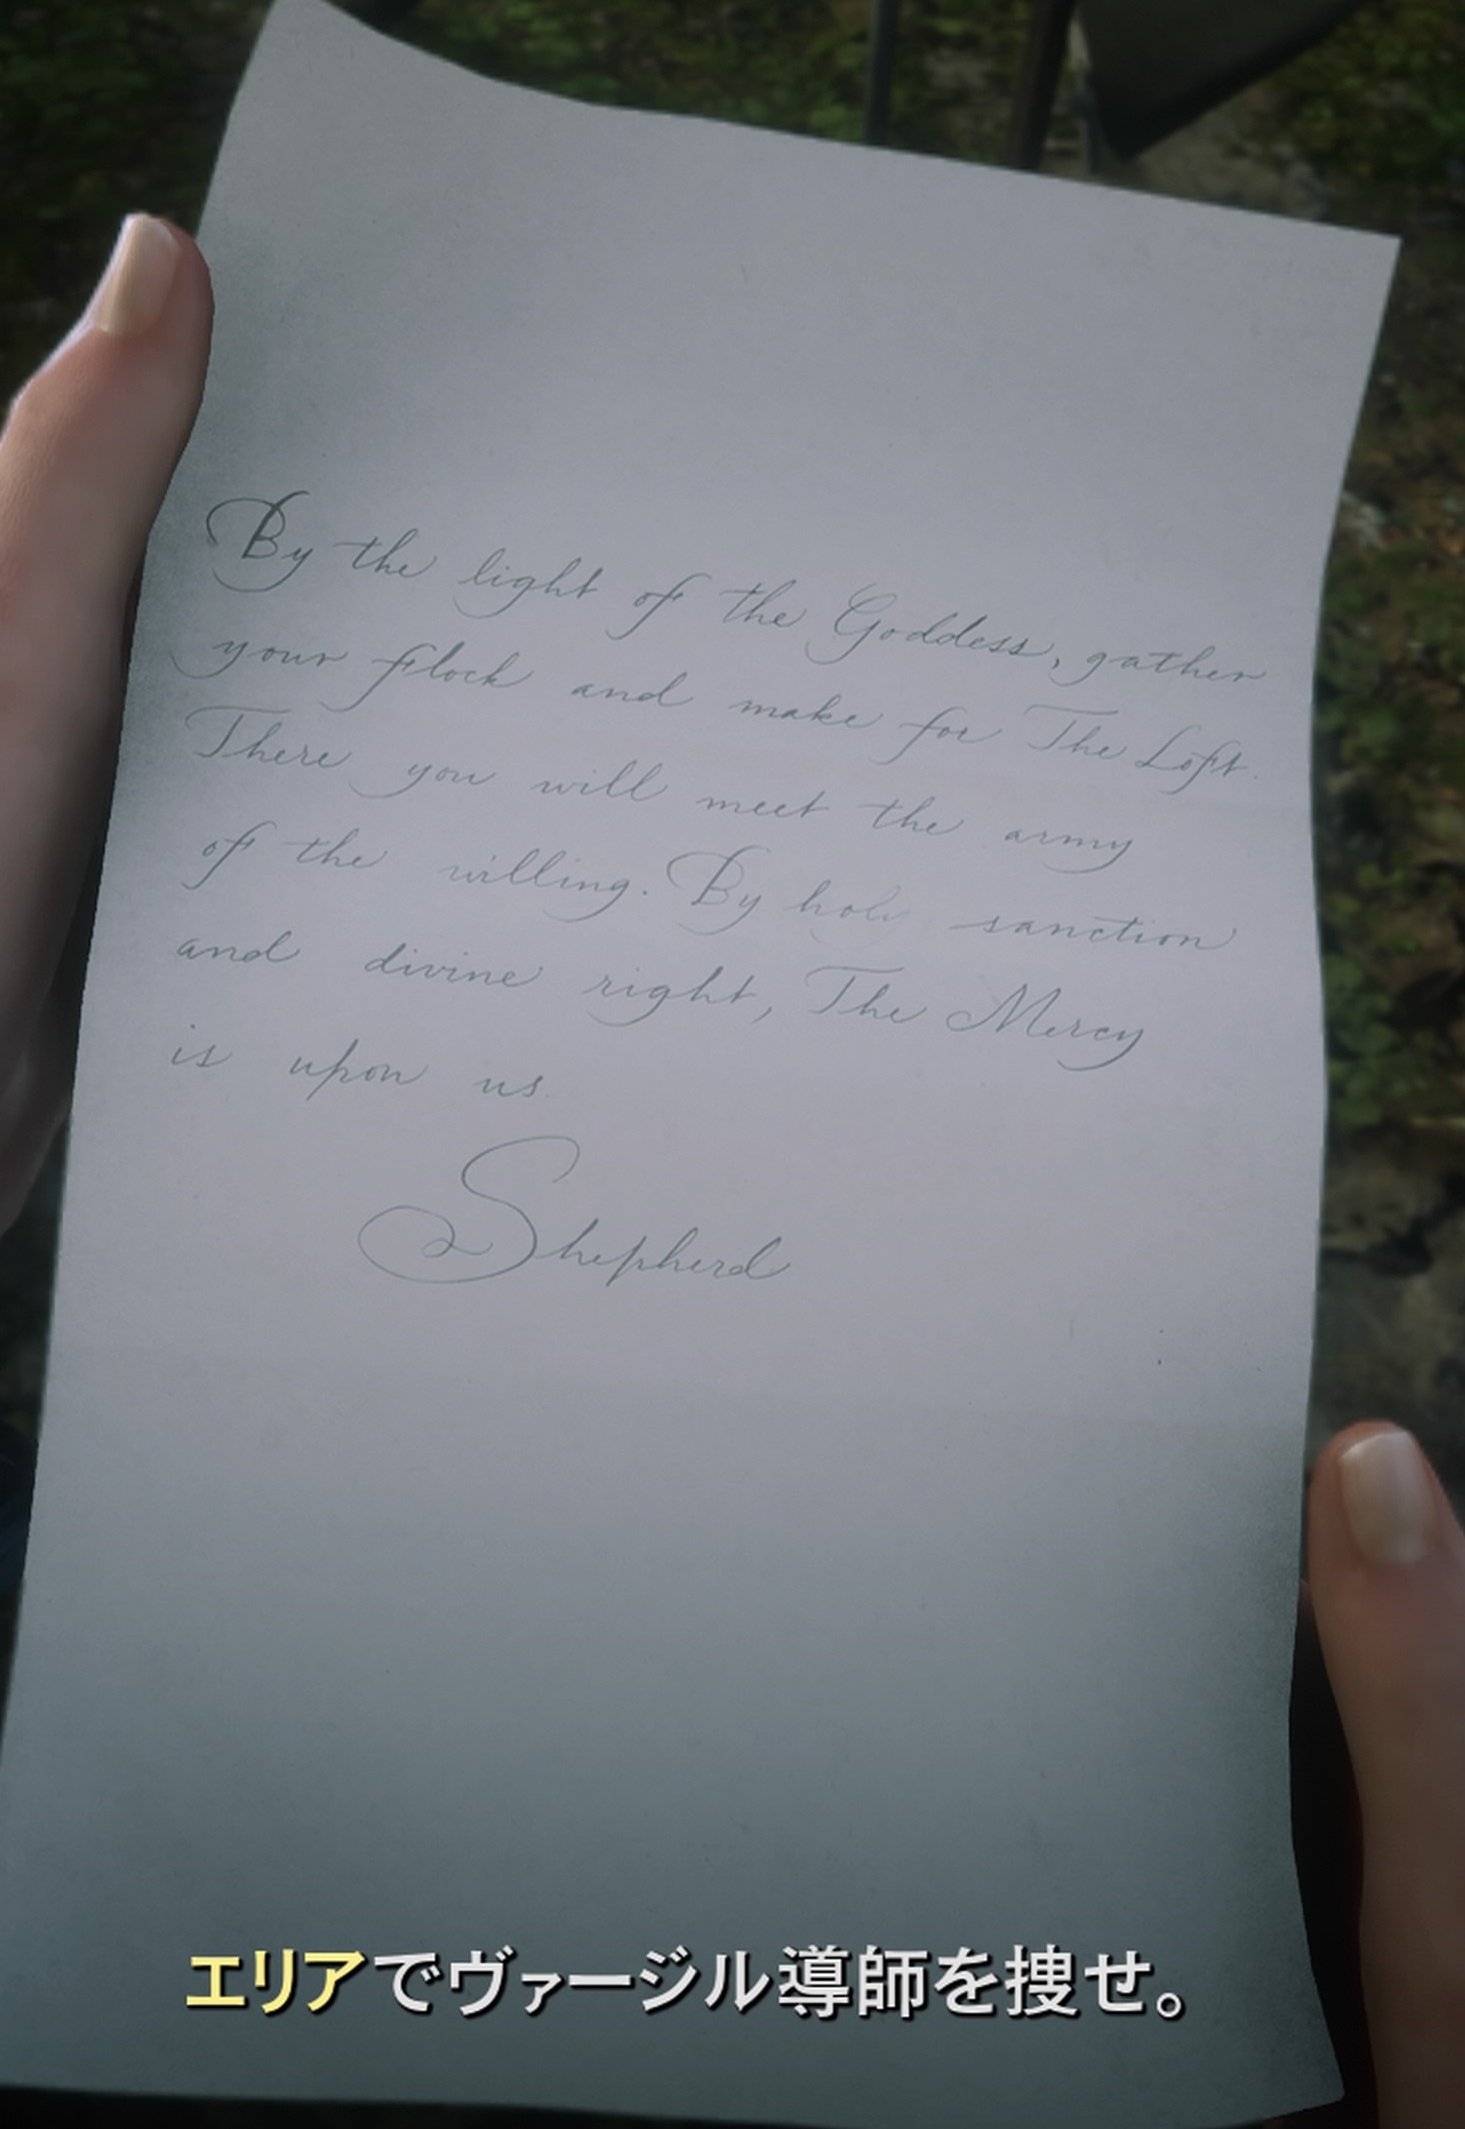 By the light of the Goddess, gather
your flock and make for The Loft.
There you will meet the army
of the willing. By holy sanction
and divine right, The Mercy
is upon us.
Shepherd
エリアでヴァージル導師を捜せ。